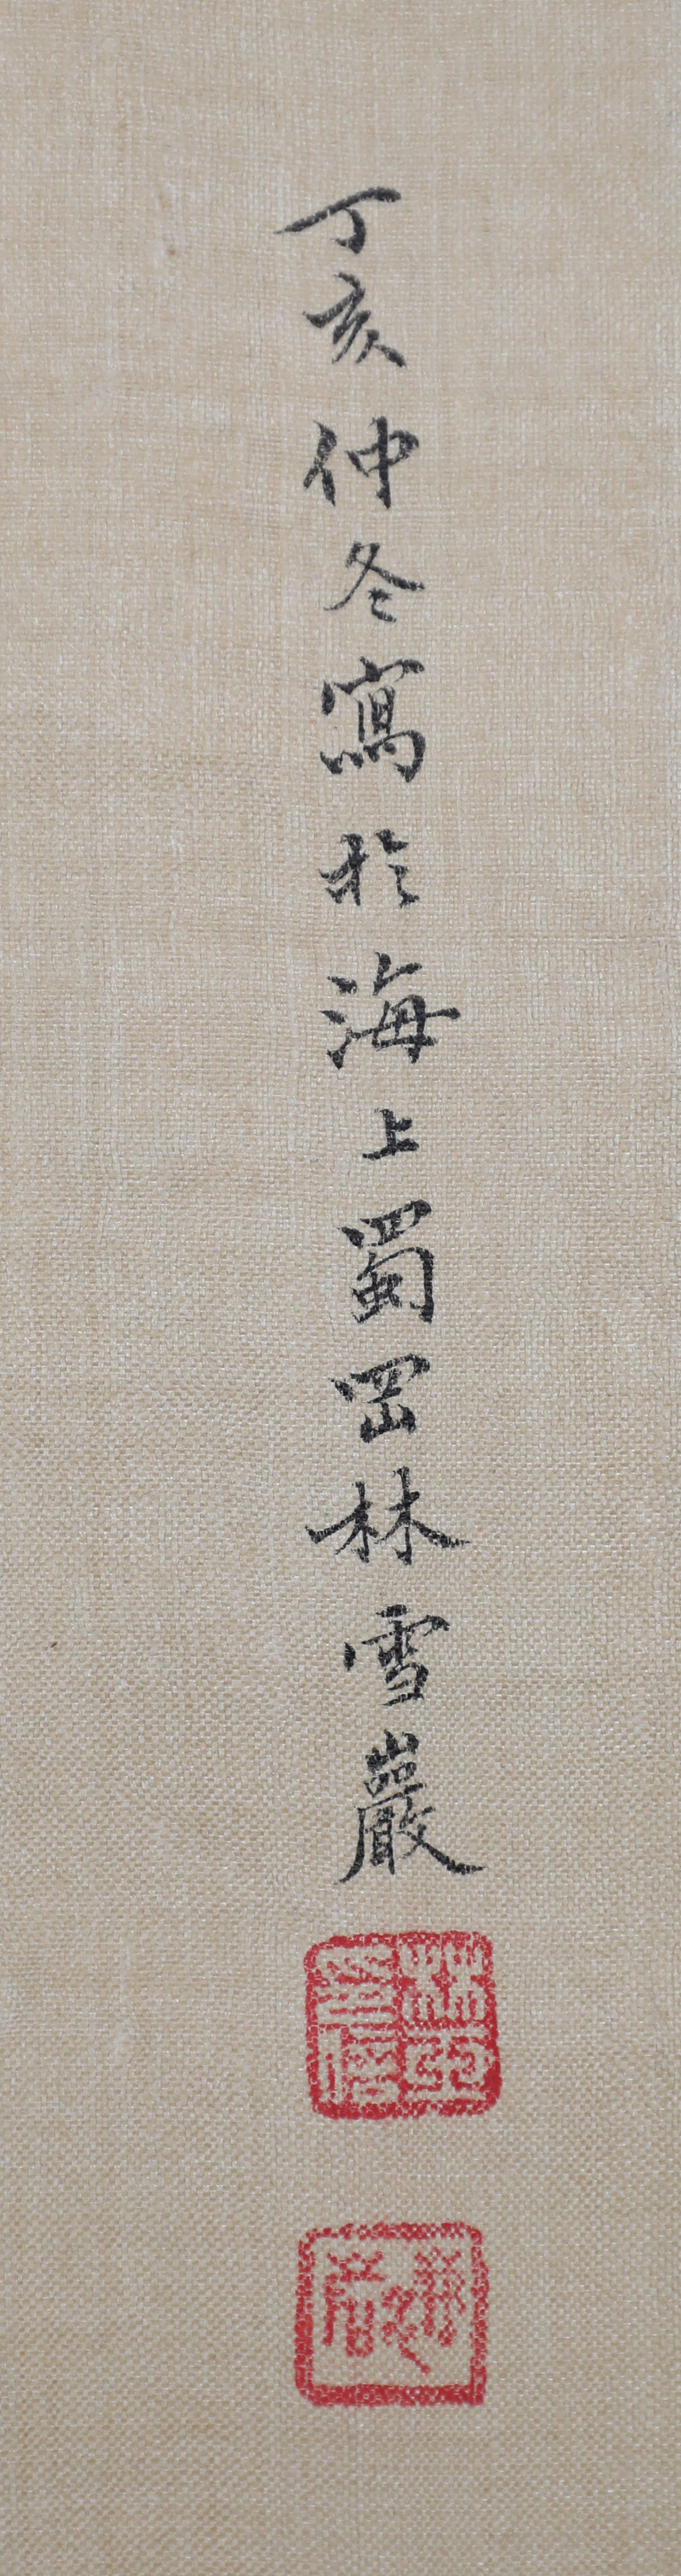 丁亥仲冬寫於海上蜀罡林雪巖